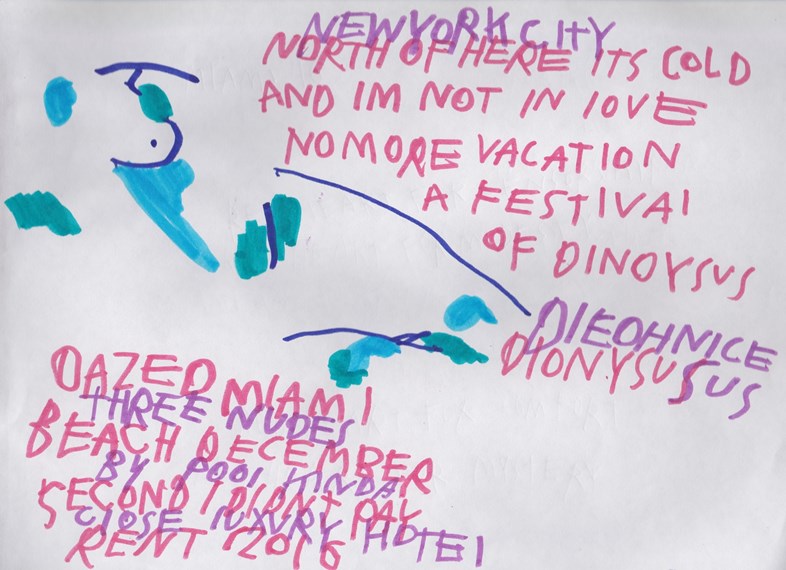 NEWYORKCITY
NORTH OF HERE ITS COLD
AND IM NOT IN lOVE
NOMORE VACATION
A FESTIVAl
OF DINOYSUS
DIEOHNICE
DIONYSUSUS
DAZED MIAMI
THREE NUDES
BEACH DECEMBER
BY POOl KINDA
SECOND I DIDNT PAY
ClOSE lUXURY HOTEl
RENT 2016